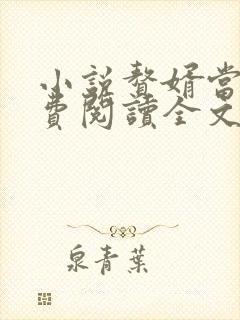 小説贅婿當
費閱讀全文
泉青葉